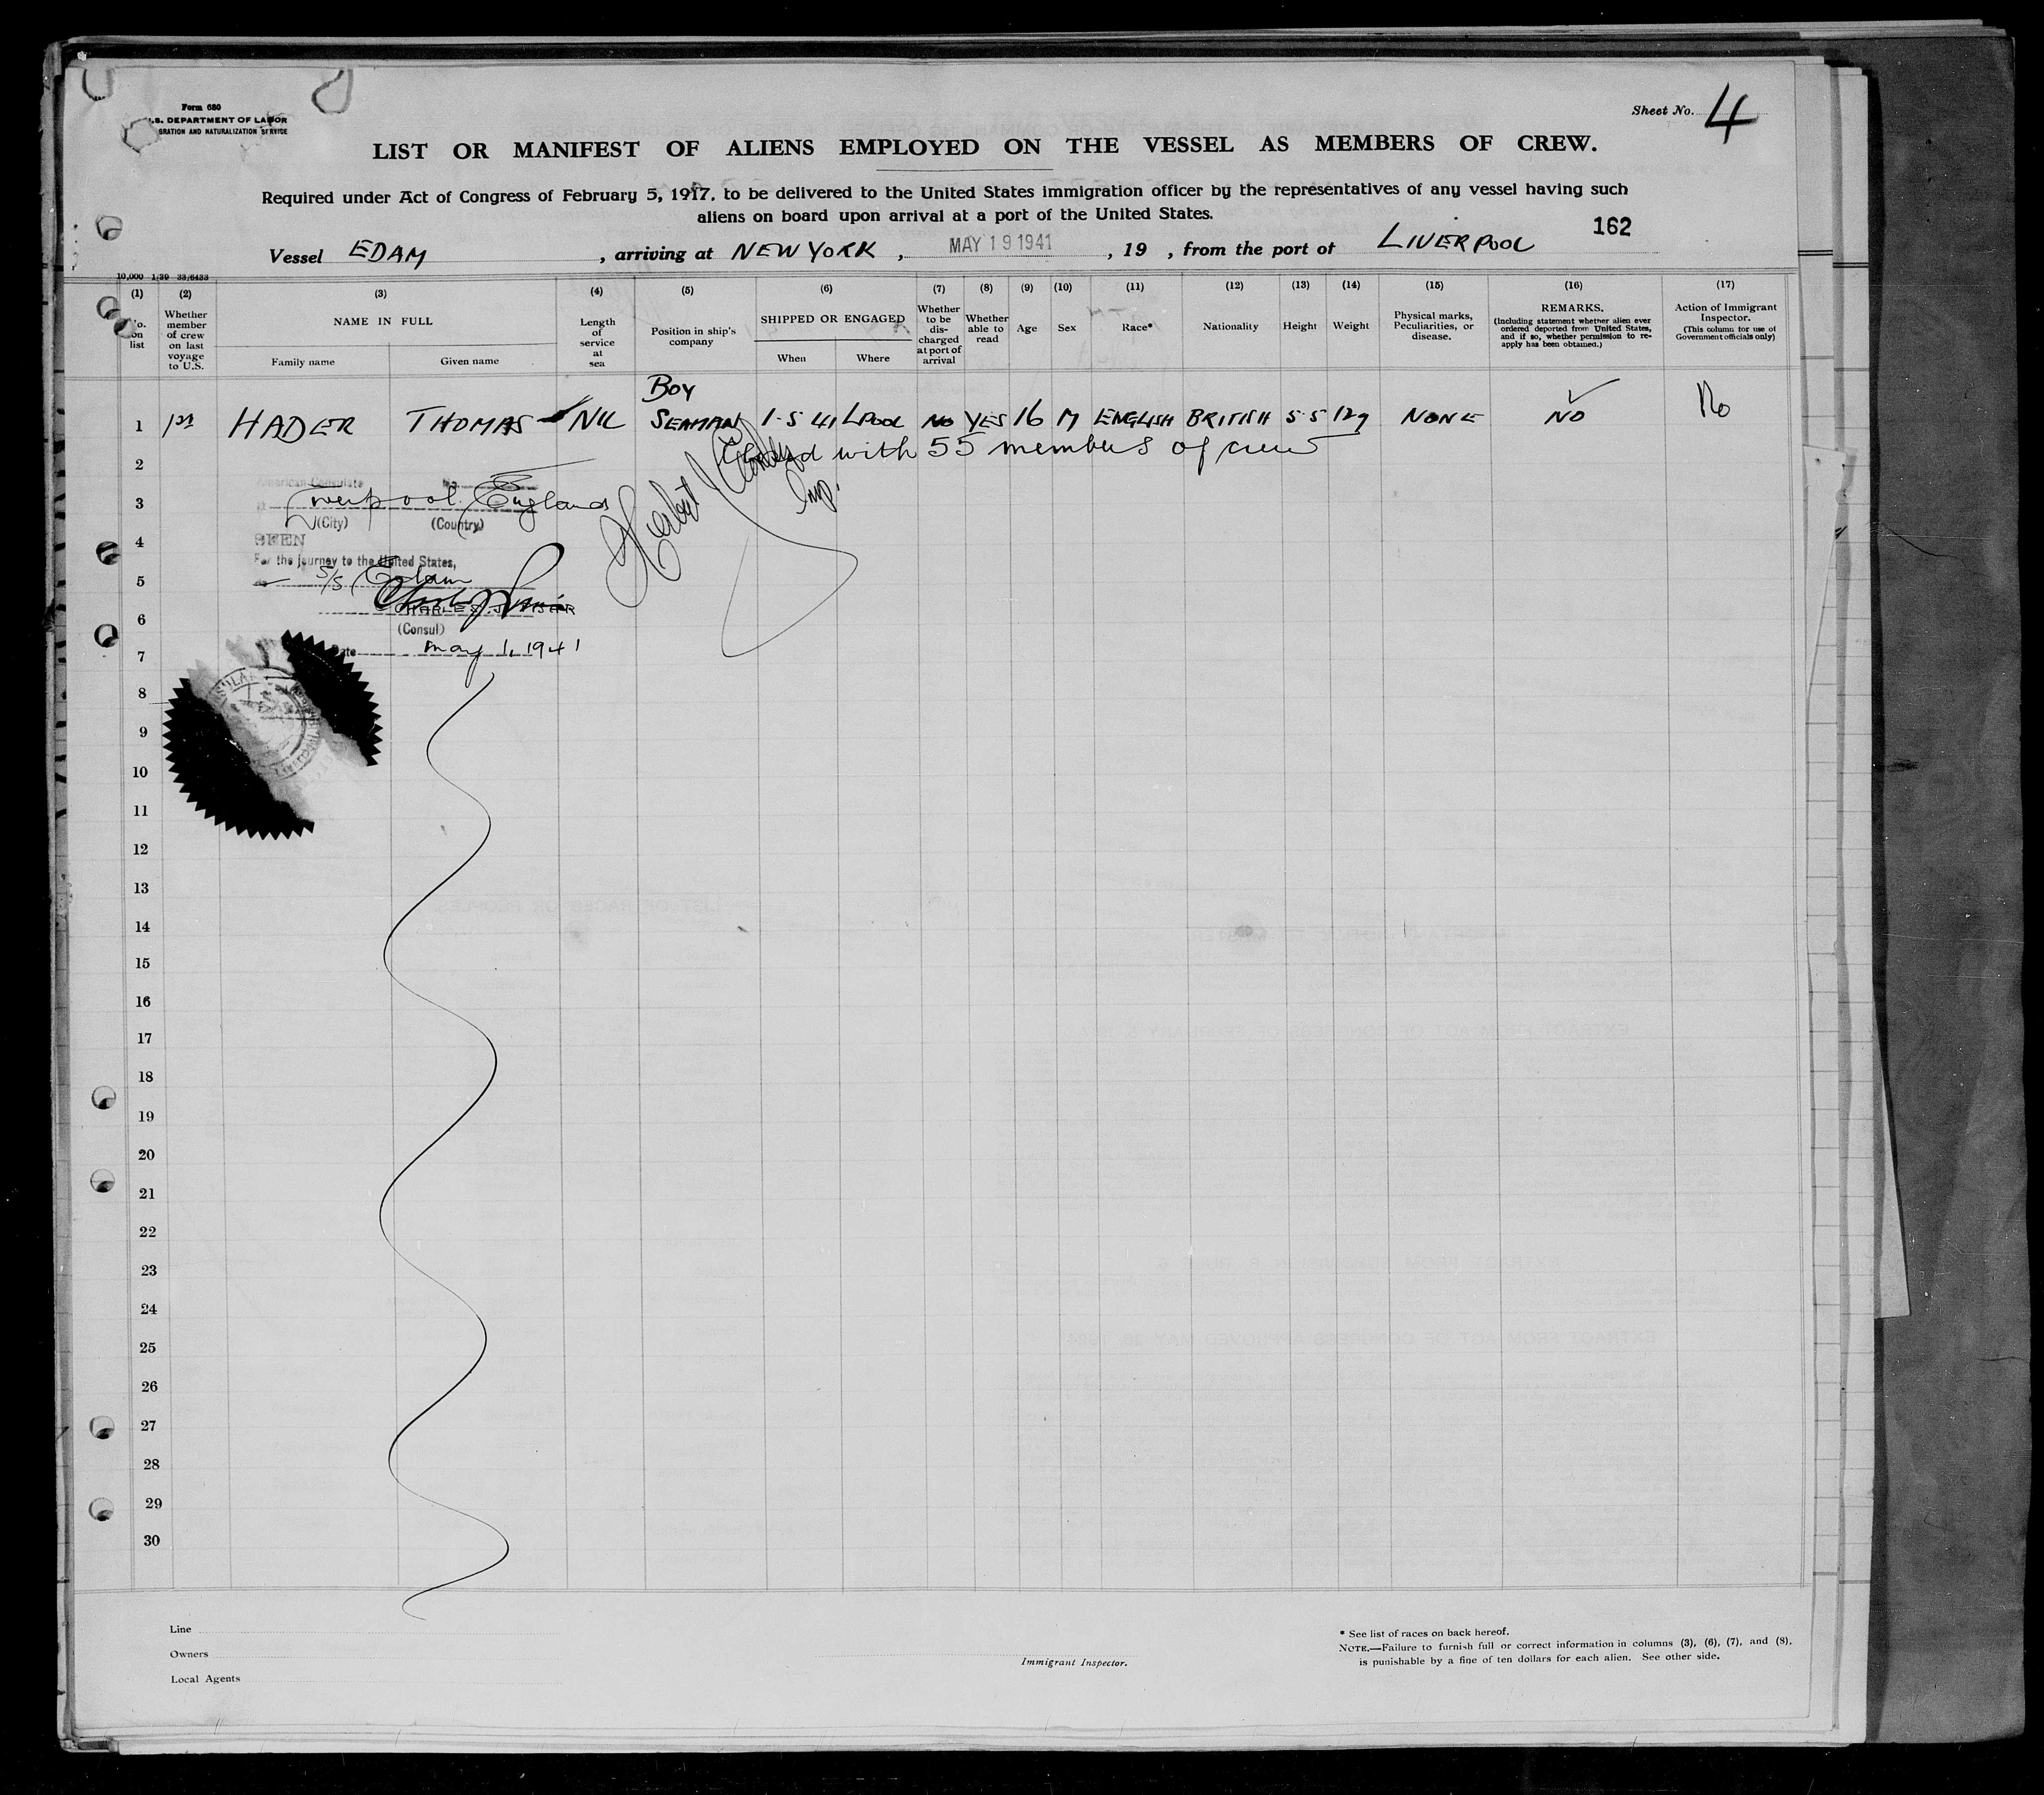 Form 680
U.S. DEPARTMENT OF LABOR
GRATION AND NATURALIZATION SERVICE
Sheet No. 4
LIST OR MANIFEST OF ALIENS EMPLOYED ON THE VESSEL AS MEMBERS OF CREW.
Required under Act of Congress of February 5, 1917, to be delivered to the United States immigration officer by the representatives of any vessel having such
aliens on board upon arrival at a port of the United States.
162
Vessel EDAM , arriving at NEW YORK , MAY 19 1941 , 19 , from the port of LIVERPOOL
10,000 1/39 33/6433
(1) (2) (3) (4) (5) (6) (7) (8) (9) (10) (11) (12) (13) (14) (15) (16) (17)
No. on list
Whether member of crew on last voyage to U.S.
NAME IN FULL
Family name
Given name
Length of service at sea
Position in ship's company
SHIPPED OR ENGAGED
When
Where
Whether to be discharged at port of arrival
Whether able to read
Age
Sex
Race*
Nationality
Height
Weight
Physical marks, Peculiarities, or disease.
REMARKS.
(Including statement whether alien ever ordered deported from United States, and if so, whether permission to re-apply has been obtained.)
Action of Immigrant Inspector.
(This column for use of Government officials only)
1 1st HADER THOMAS NIL BOY SEAMAN 1-5 41 LPOOL NO YES 16 M ENGLISH BRITISH 5 5 129 NONE NO No
2
with 55 members of crew
Insp.
American Consulate
3
Liverpool England
(City) (Country)
4
SEEN
For the journey to the United States,
5
S/S Edam
6
CHARLES
(Consul)
7
Date May 1, 1941
8
9
10
11
12
13
14
15
16
17
18
19
20
21
22
23
24
25
26
27
28
29
30
Line
Owners
Local Agents
Immigrant Inspector.
* See list of races on back hereof.
NOTE.—Failure to furnish full or correct information in columns (3), (6), (7), and (8),
is punishable by a fine of ten dollars for each alien. See other side.